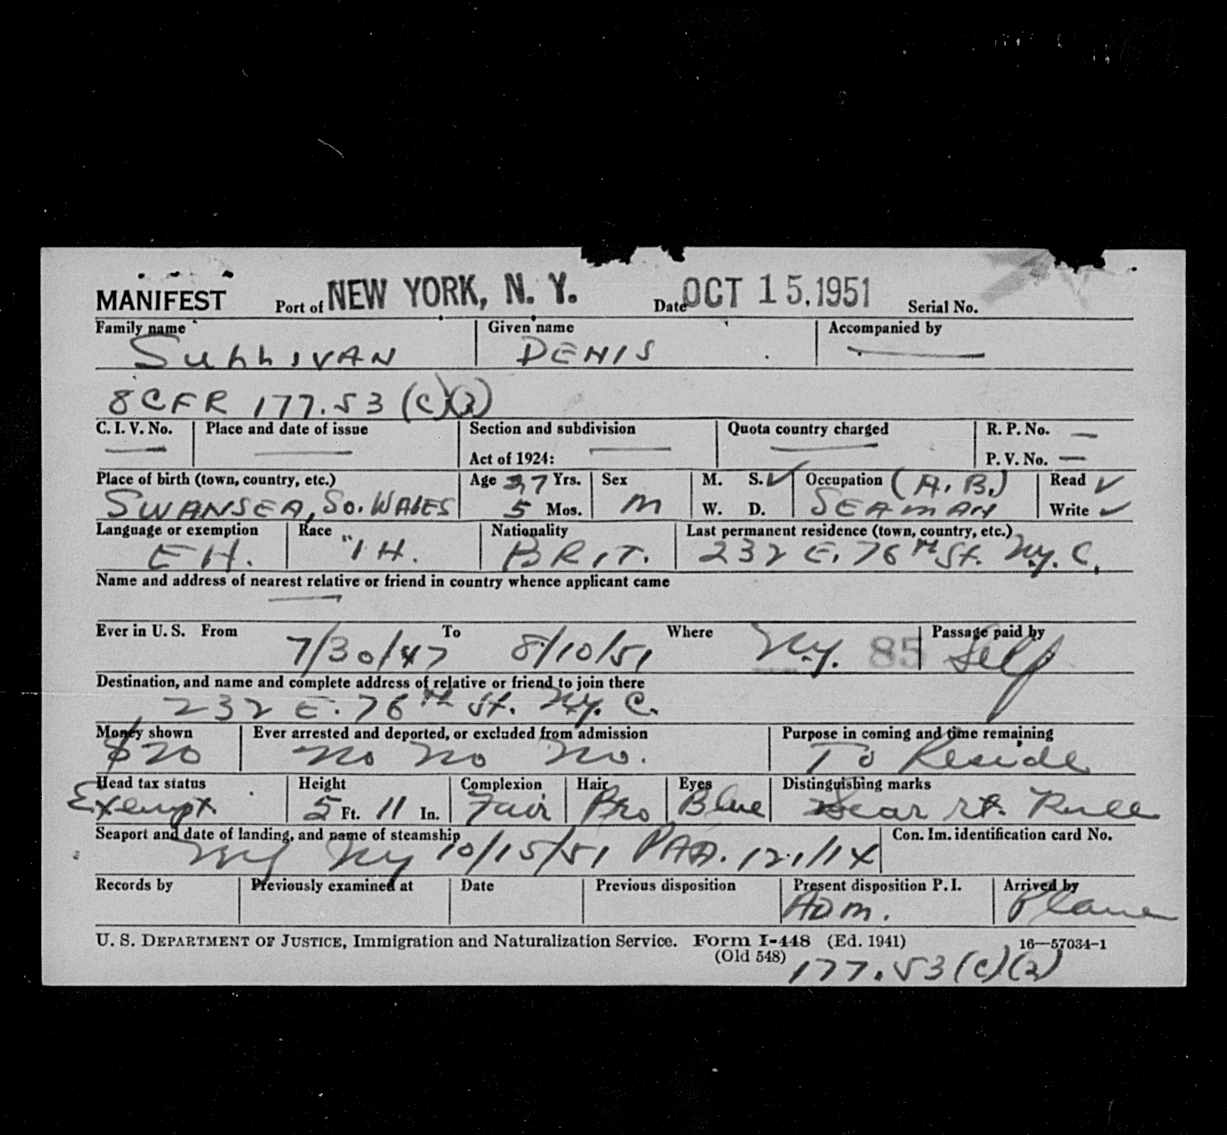 MANIFEST Port of NEW YORK, N. Y. Date OCT 15, 1951 Serial No.
Family name Given name Accompanied by
SULLIVAN DENIS —
8 CFR 177.53 (C)(2)
C. I. V. No. Place and date of issue Section and subdivision Quota country charged R. P. No. —
— — Act of 1924: — — P. V. No. —
Place of birth (town, country, etc.) Age 37 Yrs. Sex M. S. ✓ Occupation (A. B.) Read ✓
SWANSEA, So. WALES 5 Mos. M W. D. SEAMAN Write ✓
Language or exemption Race Nationality Last permanent residence (town, country, etc.)
BRIT. 232 E. 76TH St. N.Y. C.
Name and address of nearest relative or friend in country whence applicant came
—
Ever in U. S. From To Where Passage paid by
7/30/47 8/10/51 N.Y. 85 Self
Destination, and name and complete address of relative or friend to join there
232 E. 76TH St. N.Y. C.
Money shown Ever arrested and deported, or excluded from admission Purpose in coming and time remaining
$20 No No No. To Reside
Head tax status Height Complexion Hair Eyes Distinguishing marks
Exempt 5 Ft. 11 In. Fair Bro Blue Scar rt.
Seaport and date of landing, and name of steamship Con. Im. identification card No.
NY NY 10/15/51 PAA. 121/14
Records by Previously examined at Date Previous disposition Present disposition P. I. Arrived by
Adm. Plane
U. S. DEPARTMENT OF JUSTICE, Immigration and Naturalization Service. Form I-448 (Ed. 1941) 16—57034-1
(Old 548) 177.53 (C)(2)